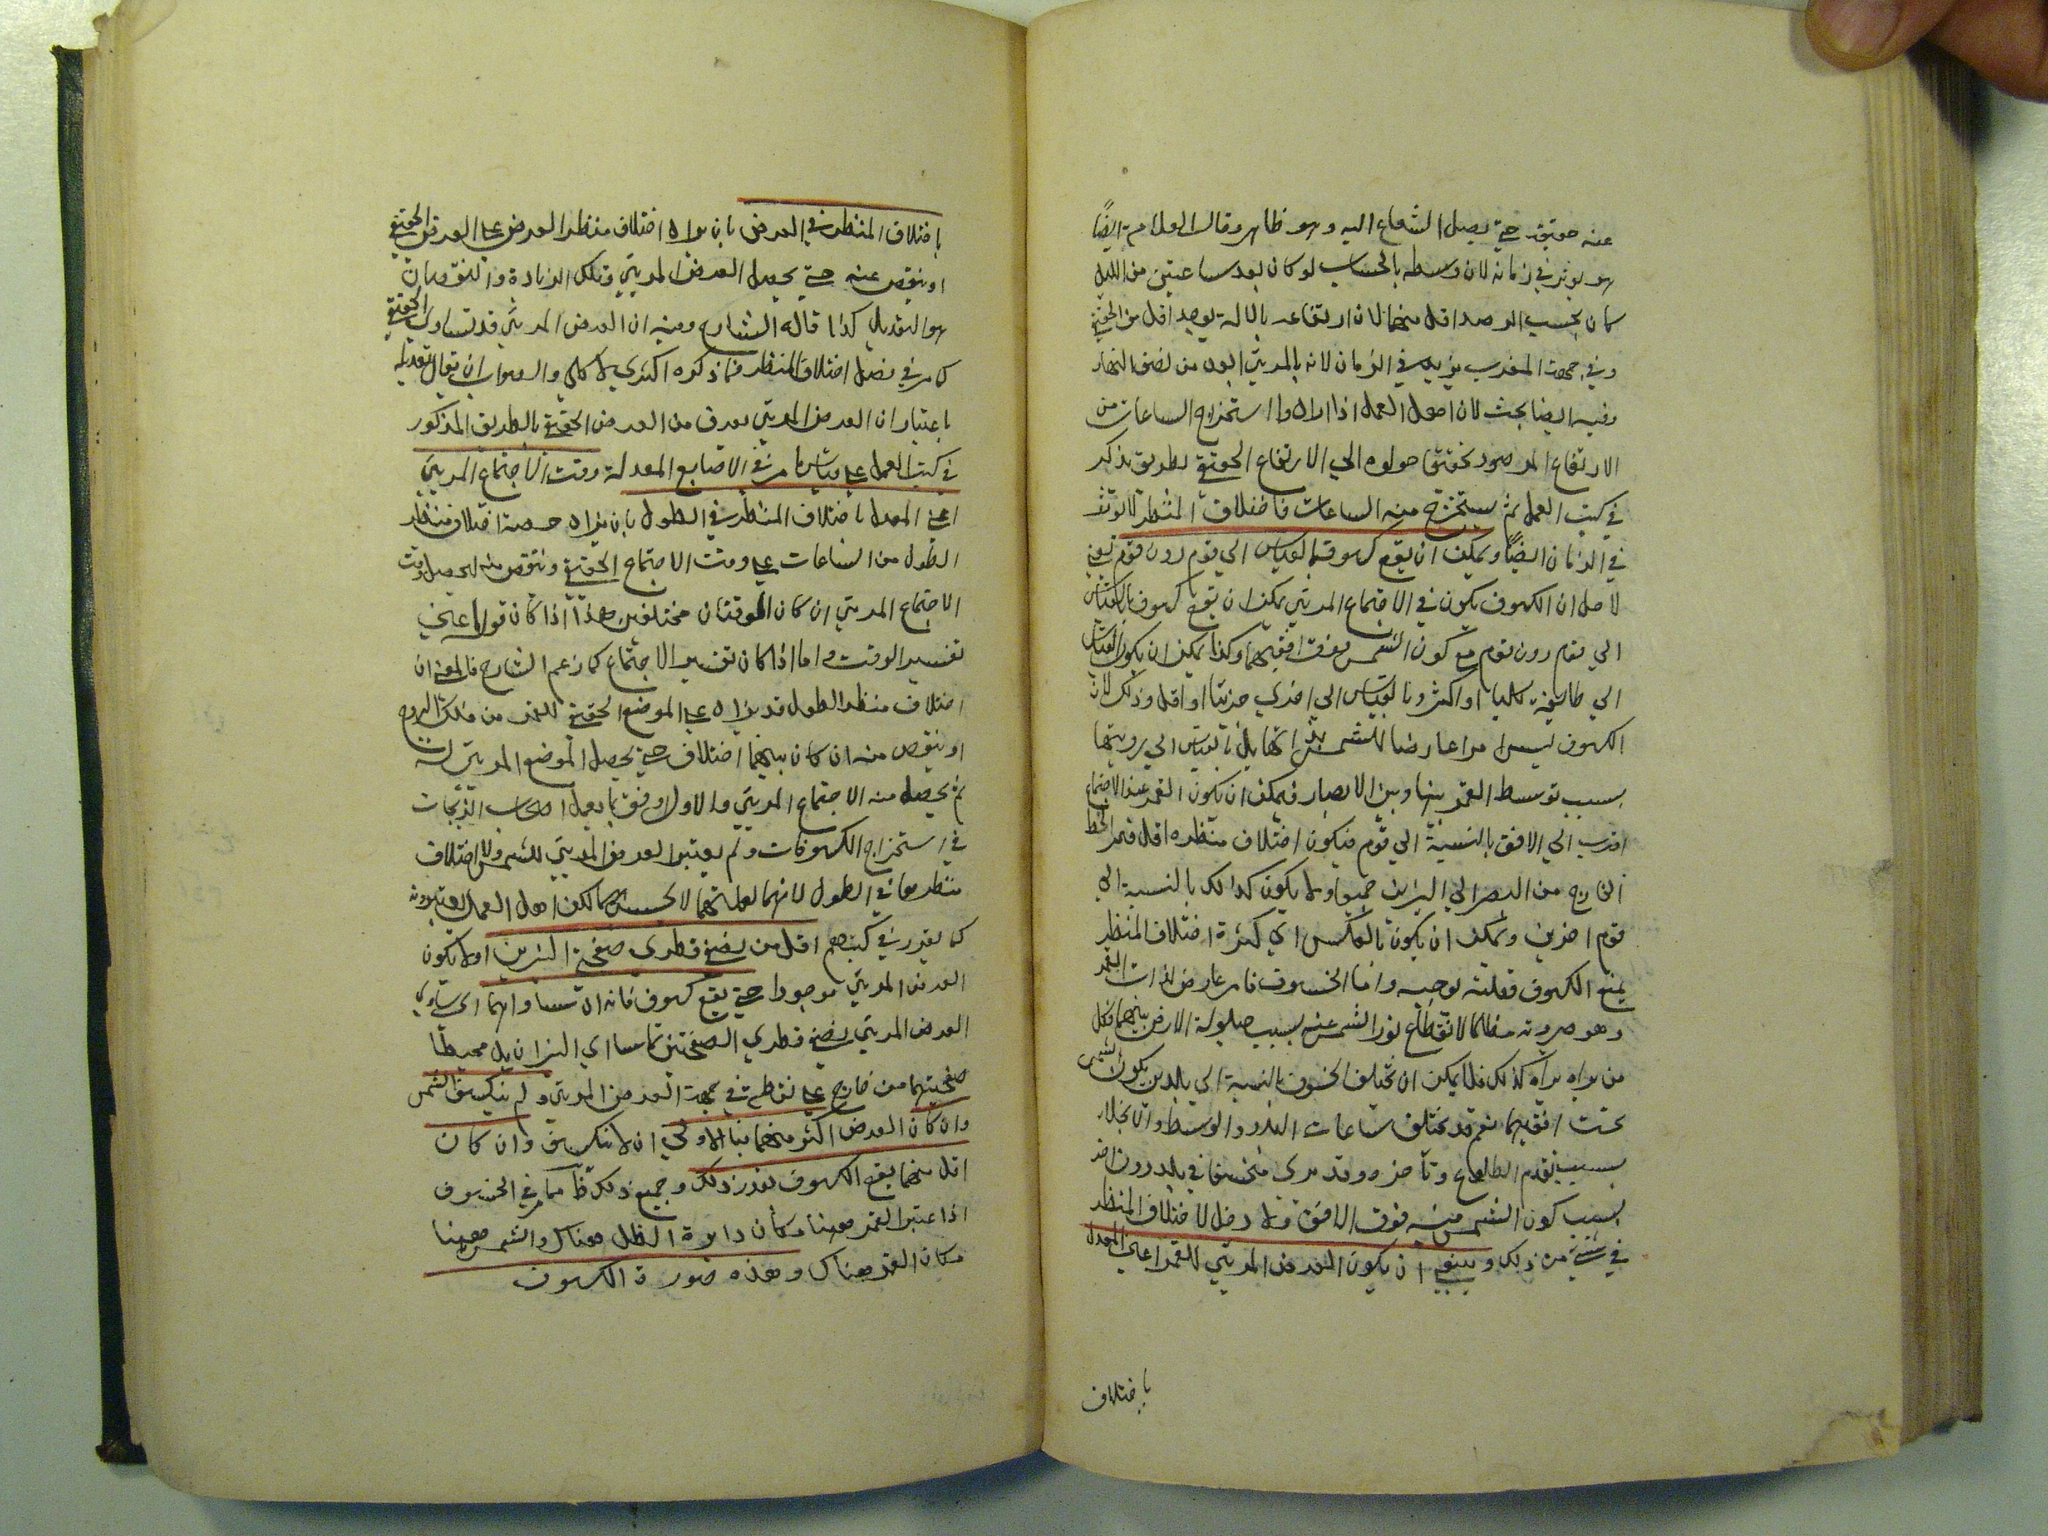 عنه حقيقة حتى يصل الشعاع اليه وهو ظاهر وقال العلامة ايضًا
هو يوثر في زمانه لان وسطه بالحساب لو كان بعد ساعتين من الليل
كان بحسب الرصد اقل منهما لان ارتفاعه بالالة يوجد اقل من الحقيقي
وفي جهة المغرب يزيد في الزمان لانه بالمرئي ابعد من نصف النهار
وفيه ايضا بحث لان اهل العمل اذا ارادوا استخراج الساعات من
الارتفاع المرصود تحقيقا حولوه الي الارتفاع الحقيقي بطريق يذكر
في كتب العمل ثم يستخرج منه الساعات فاختلاف المنظر لا يوثر
في الزمان ايضًا ويمكن ان يقع كسوف بالقياس الي قوم دون قوم يعني
لاجل ان الكسوف يكون في الاجتماع المرئي يمكن ان يقع كسوف بالقياس
الي قوم دون قوم مع كون الشمس فوق افقيهما وكذا يمكن ان يكون بالقياس
الي طايفة كليا او اكثر وبالقياس الي اخري جزئيا او اقل وذلك لان
الكسوف ليس امرا عارضا للشمس في ذاتها بل بالقياس الي رويتها
بسبب توسط القمر بينها وبين الابصار فيمكن ان يكون القمر عند الاجتماع
اقرب الي الافق بالنسبة الي قوم فيكون اختلاف منظره اقل فيمر الخط
الخارج من البصر الي النيرين جميعا ولا يكون كذلك بالنسبة الي
قوم اخرين ويمكن ان يكون بالعكس اي كثرة اختلاف المنظر
يمنع الكسوف فقلته توجبه واما الخسوف فامر عارض لذات القمر
وهو صيرورته مظلما لانقطاع نور الشمس عنه بسبب حيلولة الارض بينهما فكل
من يراه يراه كذلك فلا يمكن ان يختلف الخسوف بالنسبة الي بلدين يكون الشمس
تحت افقيهما نعم قد يختلف ساعات البدو والوسط والانجلاء
بسبب تقدم الطلوع وتاخره وقد يري منخسفا في بلد دون اخر
بسبب كون الشمس فيه فوق الافق ولا دخل لاختلاف المنظر
في شيء من ذلك وينبغي ان يكون العرض المرئي للقمر اعني المعدل
باختلاف
باختلاف المنظر في العرض بان يزاد اختلاف منظر العرض علي العرض الحقيقي
او ينقص عنه حتي يحصل العرض المرئي وتلك الزيادة والنقصان
هو التعديل كذا قاله الشارح وفيه ان العرض المرئي قد يساوي الحقيقي
كما مر في فصل اختلاف المنظر فما ذكره اكثري لا كلي والصواب ان يقال تعديله
باعتبار ان العرض المرئي يعرف من العرض الحقيقي بالطريق المذكور
في كتب العمل علي قياس ما مر في الاصابع المعدلة وقت الاجتماع المرئي
اعني المعدل باختلاف المنظر في الطول بان يزاد حصة اختلاف منظر
الطول من الساعات علي وقت الاجتماع الحقيقي وينقص منه ليحصل وقت
الاجتماع المرئي ان كان الوقتان مختلفين هذا اذا كان قوله اعني
تفسير الوقت واما اذا كان تفسير الاجتماع كما زعم الشارح فالمعني ان
اختلاف منظر الطول قد يزاد علي الموضع الحقيقي للقمر من فلك البروج
او ينقص منه ان كان بينهما اختلاف حتي يحصل الموضع المرئي له
ثم يحصل منه الاجتماع المرئي والاول اوفق بما يعمل اصحاب الزيجات
في استخراج الكسوفات ولم يعتبر العرض المرئي للشمس ولا اختلاف
منظرها في الطول لانهما لقلتهما لا يحسب بهما لكن اهل العمل يعتبرونه
كما تقرر في كتبهم اقل من نصف قطري صفحتي النيرين اولا يكون
العرض المرئي موجودا حتي يقع كسوف فانه ان تساويهما اي ساوي
العرض المرئي نصف قطري الصفحتين تماسا اي النيران بل محيطا
صفحتيهما من خارج علي نقطة في جهة العرض المرئي ولم ينكسف الشمس
وان كان العرض اكثر منهما فبالاولي ان لا تنكسف وان كان
اقل منهما يقع الكسوف بقدر ذلك وجميع ذلك كما في الخسوف
اذا اعتبر القمر ههنا مكان دايرة الظل هناك والشمس ههنا
مكان القمر هناك وهذه صورة الكسوف